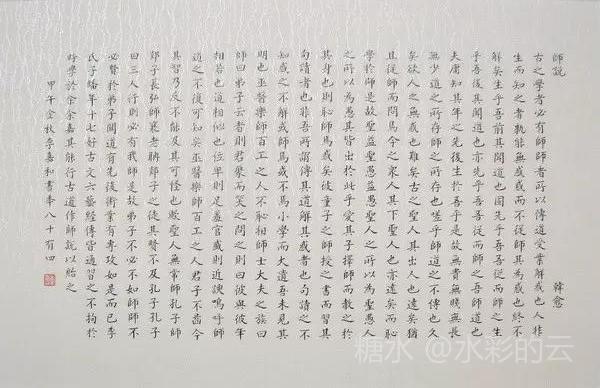 師說 韓愈
古之學者必有師師者所以傳道受業解惑也人非
生而知之者孰能無惑惑而不從師其為惑也終不
解矣生乎吾前其聞道也固先乎吾吾從而師之生
乎吾後其聞道也亦先乎吾吾從而師之吾師道也
夫庸知其年之先後生於吾乎是故無貴無賤無長
無少道之所存師之所存也嗟乎師道之不傳也久
矣欲人之無惑也難矣古之聖人其出人也遠矣猶
且從師而問焉今之眾人其下聖人也亦遠矣而恥
學於師是故聖益聖愚益愚聖人之所以為聖愚人
之所以為愚其皆出於此乎愛其子擇師而教之於
其身也則恥師焉惑矣彼童子之師授之書而習其
句讀者也非吾所謂傳其道解其惑者也句讀之不
知惑之不解或師焉或不焉小學而大遺吾未見其
明也巫醫樂師百工之人不恥相師士大夫之族曰
師曰弟子云者則群聚而笑之問之則曰彼與彼年
相若也道相似也位卑則足羞官盛則近諛嗚呼師
道之不復可知矣巫醫樂師百工之人君子不齒今
其智乃反不能及其可怪也歟聖人無常師孔子師
郯子萇弘師襄老聃郯子之徒其賢不及孔子孔子
曰三人行則必有我師是故弟子不必不如師師不
必賢於弟子聞道有先後術業有專攻如是而已李
氏子蟠年十七好古文六藝經傳皆通習之不拘於
時學於余余嘉其能行古道作師說以貽之
甲午金秋李嘉和書八十有四
糖水 @水彩的云